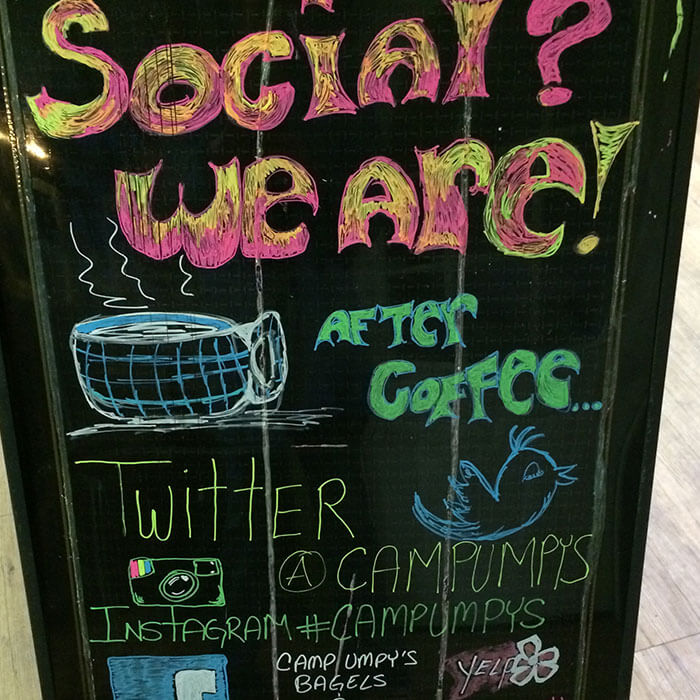 Social?
we are!
AFTER
COFFEE...
TWITTER
@CAMPUMPYS
INSTAGRAM #CAMPUMPYS
CAMP UMPY'S
BAGELS
YELP
f